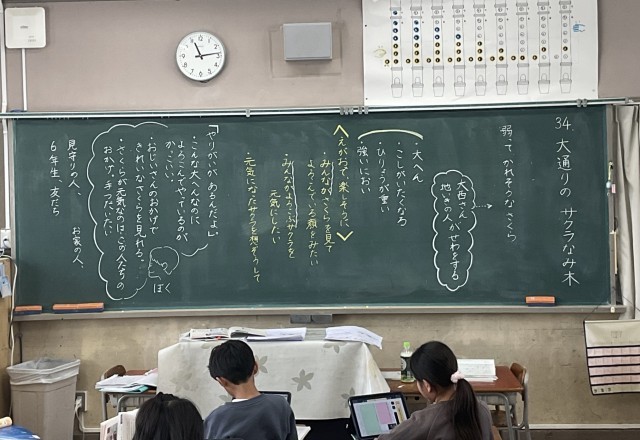 34. 大通りの サクラなみ木
弱って かれそうな さくら
大西さん
地いきの人がせわをする
・大へん
・こしがいたくなる
・ひりょうが重い
・強いにおい
えがおで、楽しそうに、
・みんながさくらを見て
よろこんでいる顔をみたい
みんながよろこぶサクラを
元気にしたい
・元気になったサクラを想ぞうして
「やりがいがあるんだよ」
・こんな大へんなのに
よろこんでやっているのが
かっこいい。
・おじいさんのおかげで
きれいなさくらを見れる。
・さくらが元気なのは、この人たちの
おかげ。手つだいたい
ぼく
見守りの人、 お家の人、
6年生、友だち